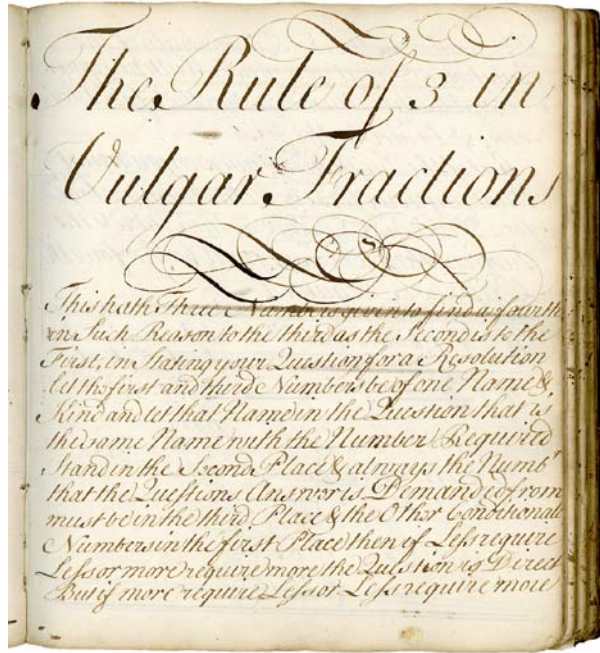 The Rule of 3 in
Vulgar Fractions
This hath Three Numbers given to find a fourth
in Such Reason to the third as the Second is to the
First, in Stating your Question for a Resolution
let the first and third Numbers be of one Name &
Kind and let that Name in the Question that is
the same Name with the Number Required
Stand in the Second Place & always the Numbr
that the Questions Answer is Demanded from
must be in the third Place & the Other Conditionall
Numbers in the first Place then if Less require
Less or more require more the Question is Direct
But if more require Less or Less require more